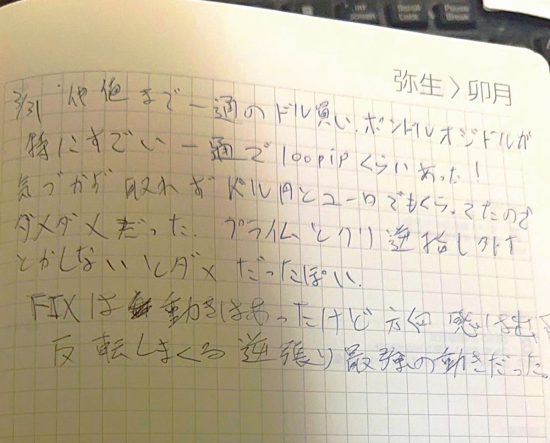 弥生 〉卯月
3/31 仲値まで一通のドル買い、ポンドルオジドルが
特にすごい一通で100pipくらいあった!
気づかず取れずドル円とユーロでもくらってたので
ダメダメだった. プライムとクリ 逆指し外す
とかしないとダメだったぽい.
FIXは 動きはあったけど方向感は出
反転しまくる逆張り最強の動きだった。